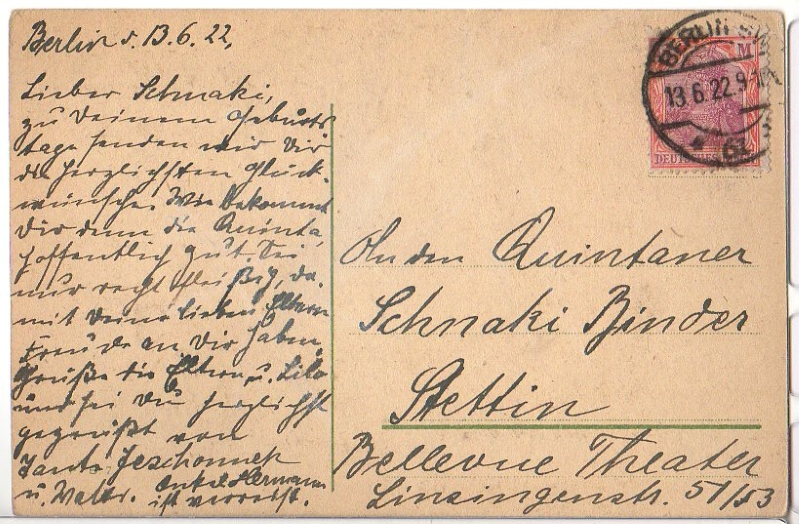 Berlin d. 13.6.22.
Lieber Schnaki,
zu Deinem Geburts
tage senden wir Dir
die herzlichsten Glück-
wünsche. Wie bekommt
Dir denn die Quinta,
hoffentlich gut. Sei
nur recht fleißig, da-
mit Deine lieben Eltern
Freude an Dir haben.
Grüße die Eltern u. Lilo
und sei Du herzlichst
gegrüßt von
Tante Jeschonnek
u. Walter. Onkel Hermann
ist verreist.
BERLIN SW
13.6.22.9-
61
M
DEUTSCHES
An den Quintaner
Schnaki Binder
Stettin
Bellevue Theater
Linsingenstr. 51/53